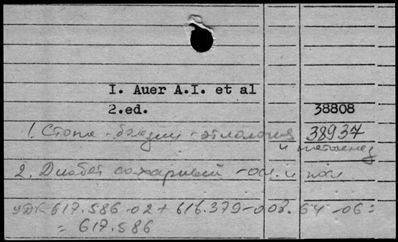 I. Auer A.I. et al
2.ed. 38808
1. Стопа - болезни - этиология 38937
и патогенез
2. Диабет сахарный - осл. и
УДК 617.586-02+616.379-008.64-06:
= 617.586